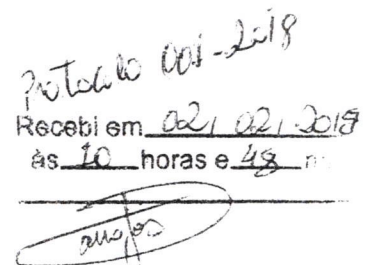 Protocolo 001-2018
Recebi em 02/02/2018
às 10 horas e 48 m